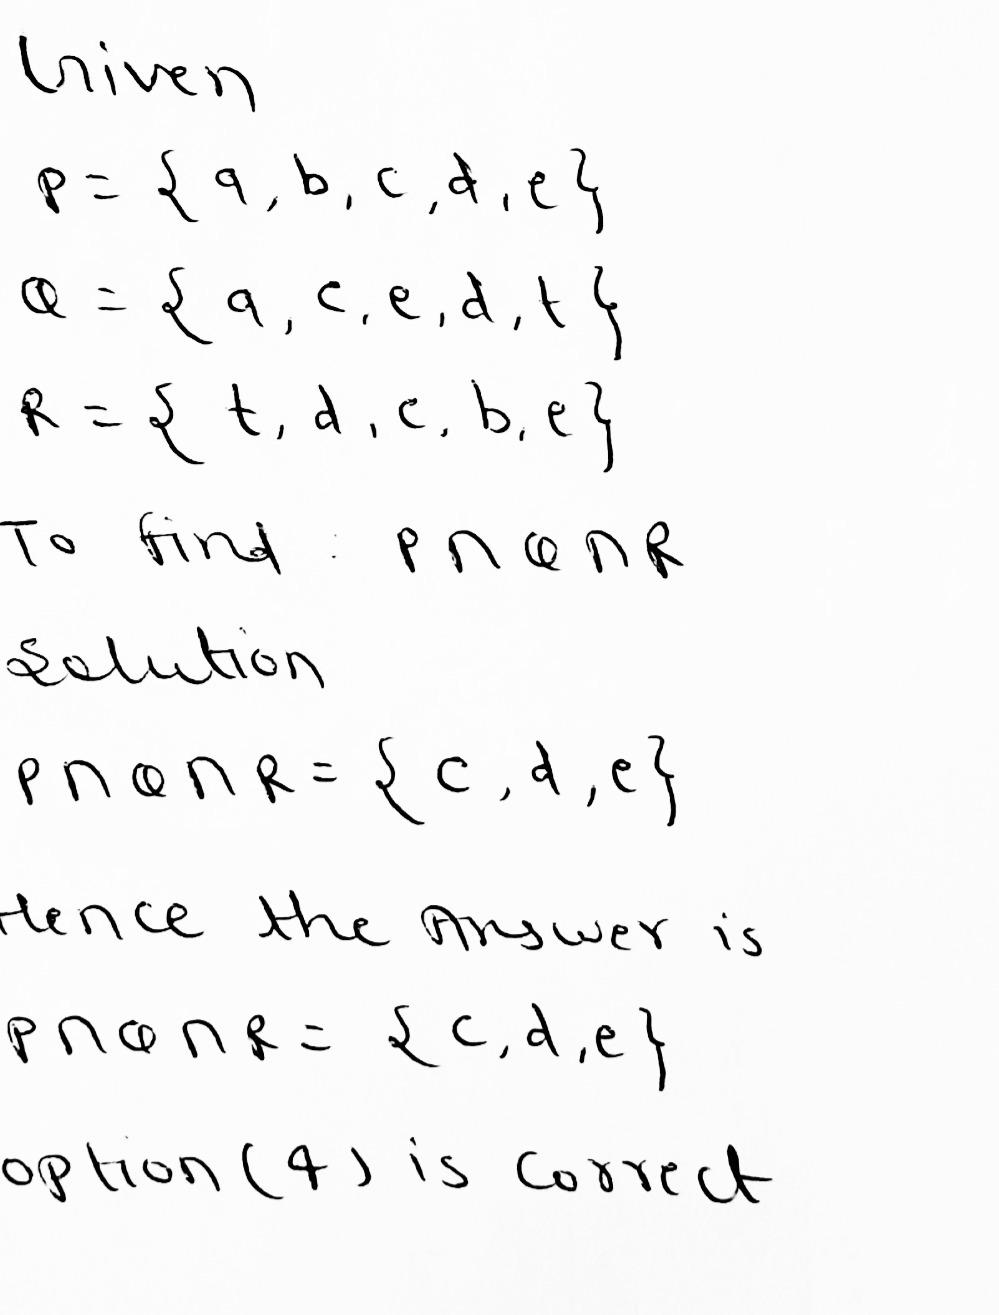 Given
P = { a, b, c, d, e}
Q = { a, c, e, d, t}
R = { t, d, c, b, e}
To find : P∩Q∩R
Solution
P∩Q∩R = { c, d, e}
Hence the Answer is
P∩Q∩R = { c, d, e}
option (4) is correct